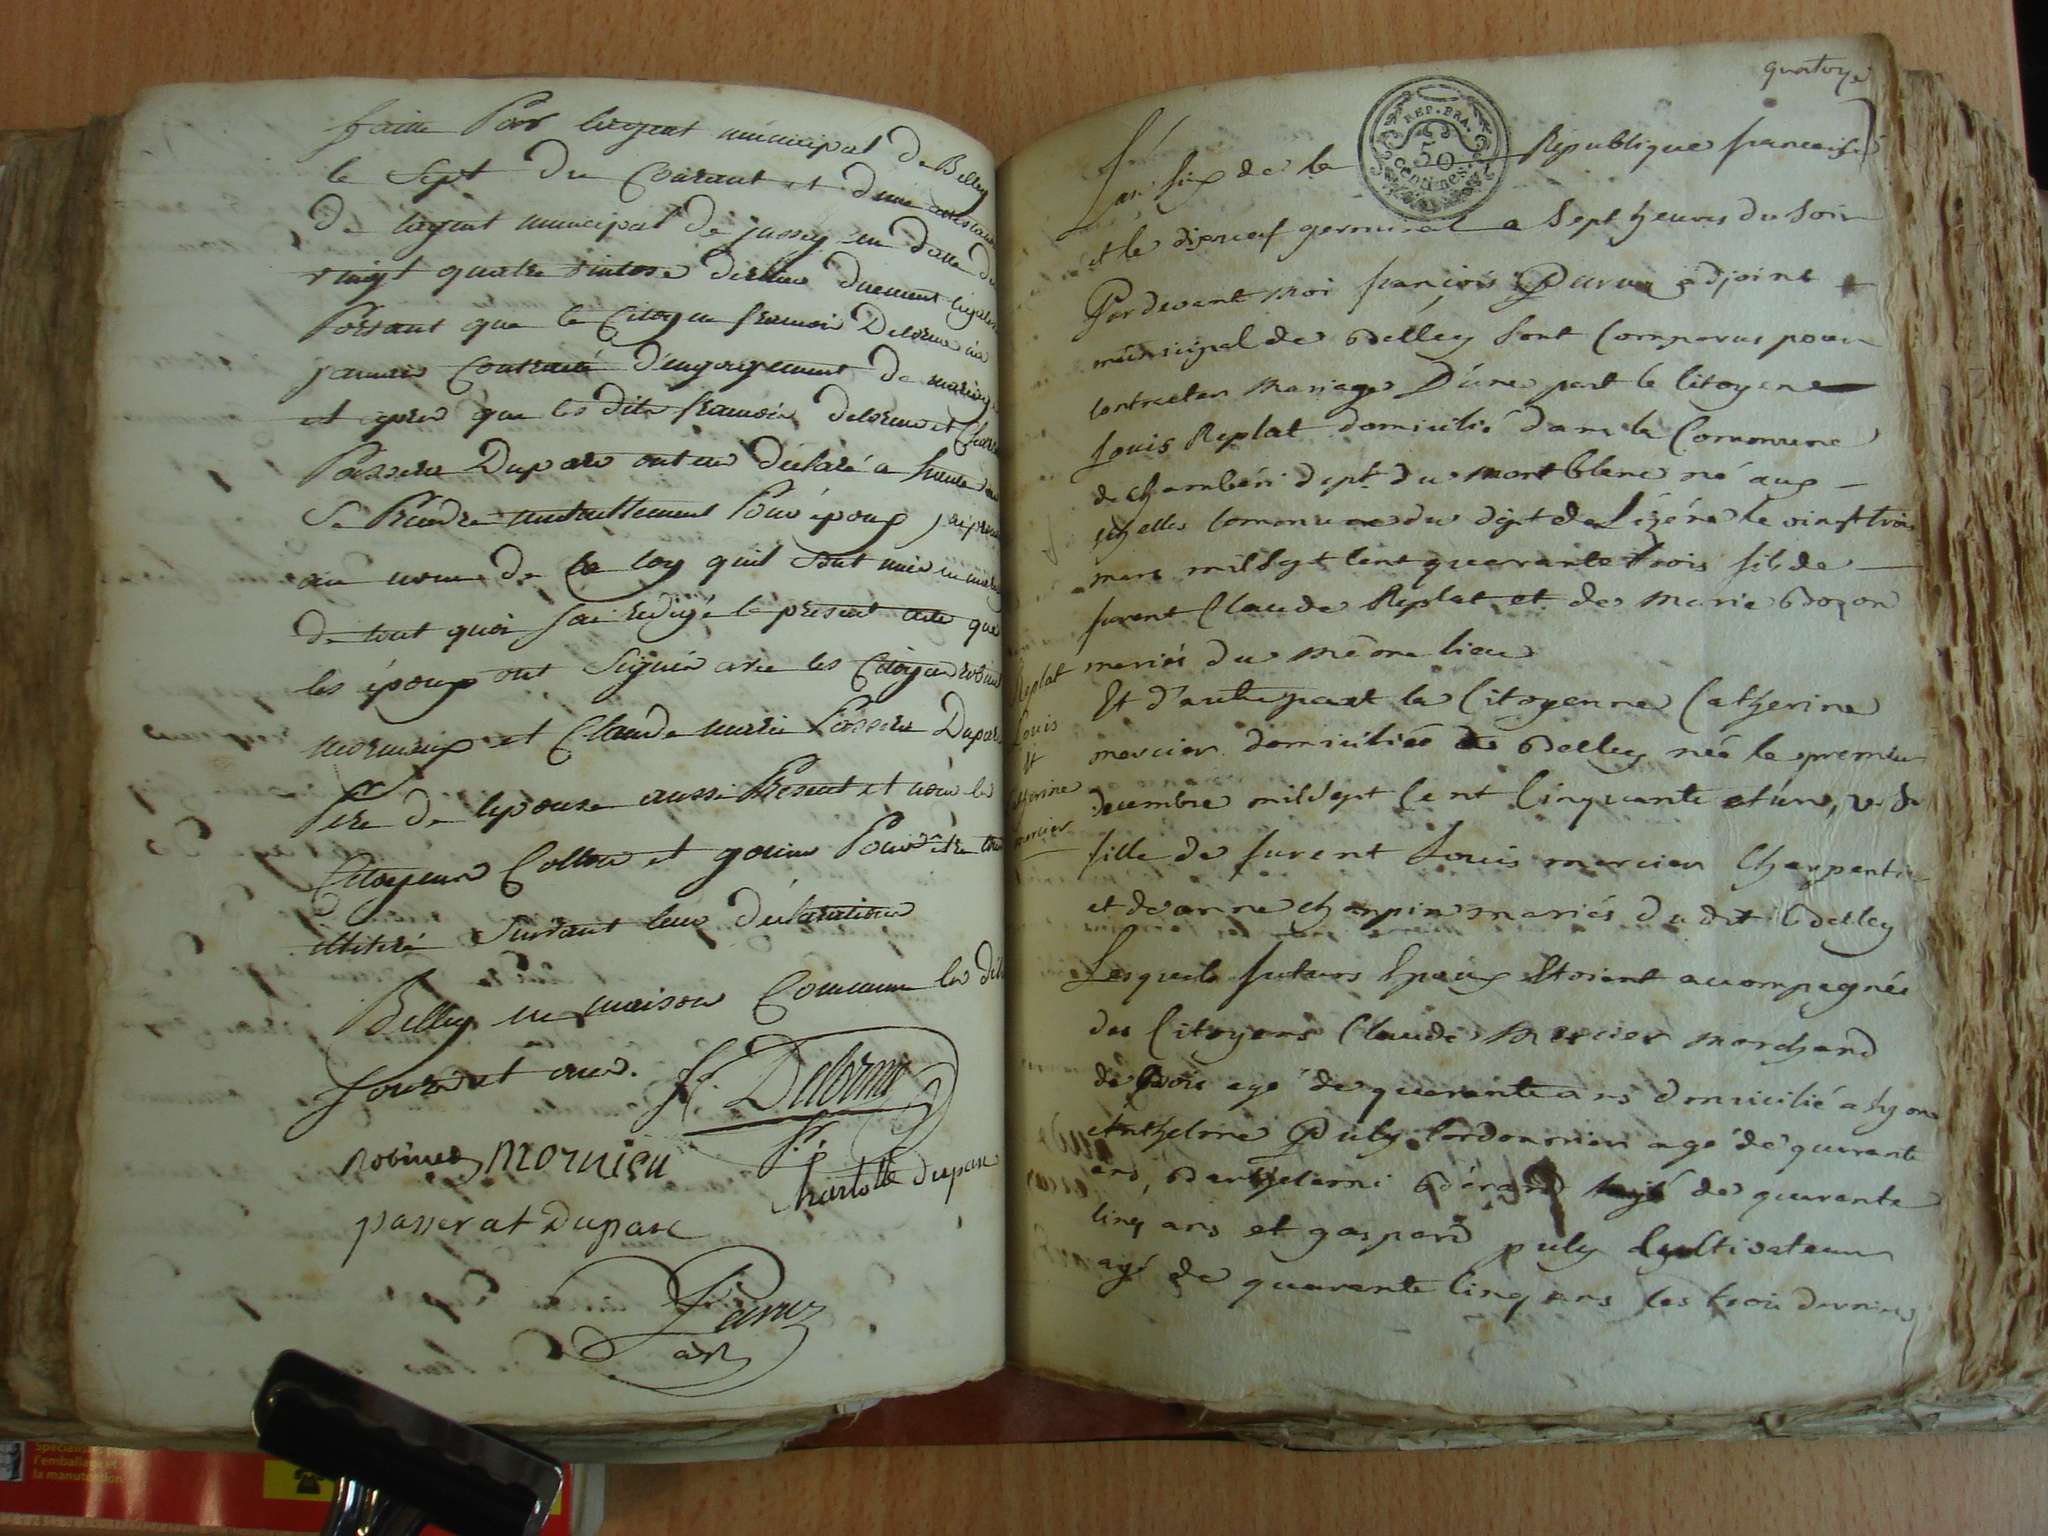 faitte Par lagent municipal de Belley
le Sept du Courant et d'une
de lagent municipal de jussey en datte du
vingt quatre vintose dernier duement
Portant que le Citoyen francois Delorme n'a
jamais Contracté d'engagement de mariage
et apres que les dits francois delorme et
Passerat Duparc ont eu déclaré a haute voix
Se Prendre mutuellement Pour époux j'ai
au nom de la loy quil sont unis en
de tout quoi j'ai redigé le présent acte que
les époux ont Signés avec les Citoyens
et Claude marie Passerat Duparc
Père de lepouse aussi Present et non les
Citoyens et Pour être
illitéré Suivant leur déclaration
Belley en maison Commune les dits
jour et an.
f. Delorme
mornieu
Charlotte duparc
passerat Duparc
adj
quatorze
L'an six de la République francaise
REP. FRA.
50
Centimes
et le dixneuf germinal a Sept heures du Soir
Pardevant moi françois adjoint
municipal de Belley Sont Comparus pour
Contracter mariage D'une part le Citoyen
Louis Replat domicilié dans la Commune
de Chambéri dept. du montblanc né aux
echelles Commune du dept de L'izére le vingt trois
mars mil sept Cent quarrante trois fils de
furent Claude Replat et de marie Bozon
mariés du même lieu
Replat
Louis
Et
Catherine
mercier
Et d'autre part la Citoyenne Catherine
mercier domiciliée de Belley née le premier
decembre mil sept Cent Cinquante et un,
fille de furent Louis mercier Charpentier
et de anne mariés du dit Belley
Lesquels futurs Epoux Etoient accompagnés
des Citoyens Claude Mercier marchand
de Bois agé de quarante ans domicilié a lyon
Anthelme Puly Cordonnier agé de quarante
ans, Barthelemi Bérard agé de quarante
Cinq ans et gaspard puly Cultivateur
agé de quarante Cinq ans les trois derniers
Spécialiste
l'emballage et
la manutention